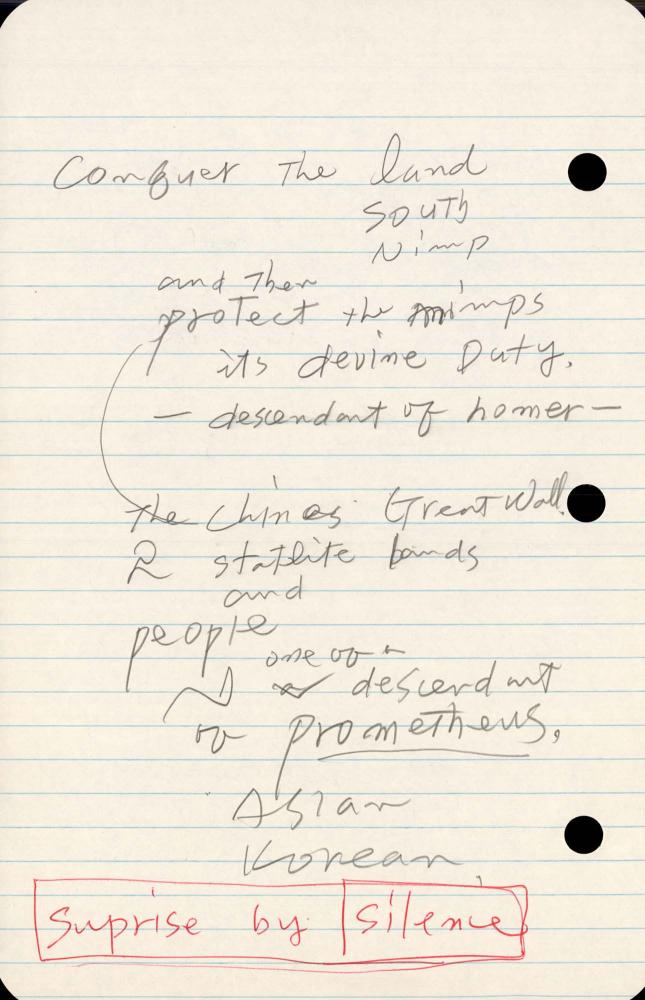 Conquer The land
South
Nimp
and Then
protect the nimps
its devine Duty.
— descendant of homer —
the Chines Great Wall.
2 statlite bands
and
people
one of a
descendant
of prometheus.
Asian
Korean,
Suprise by Silence